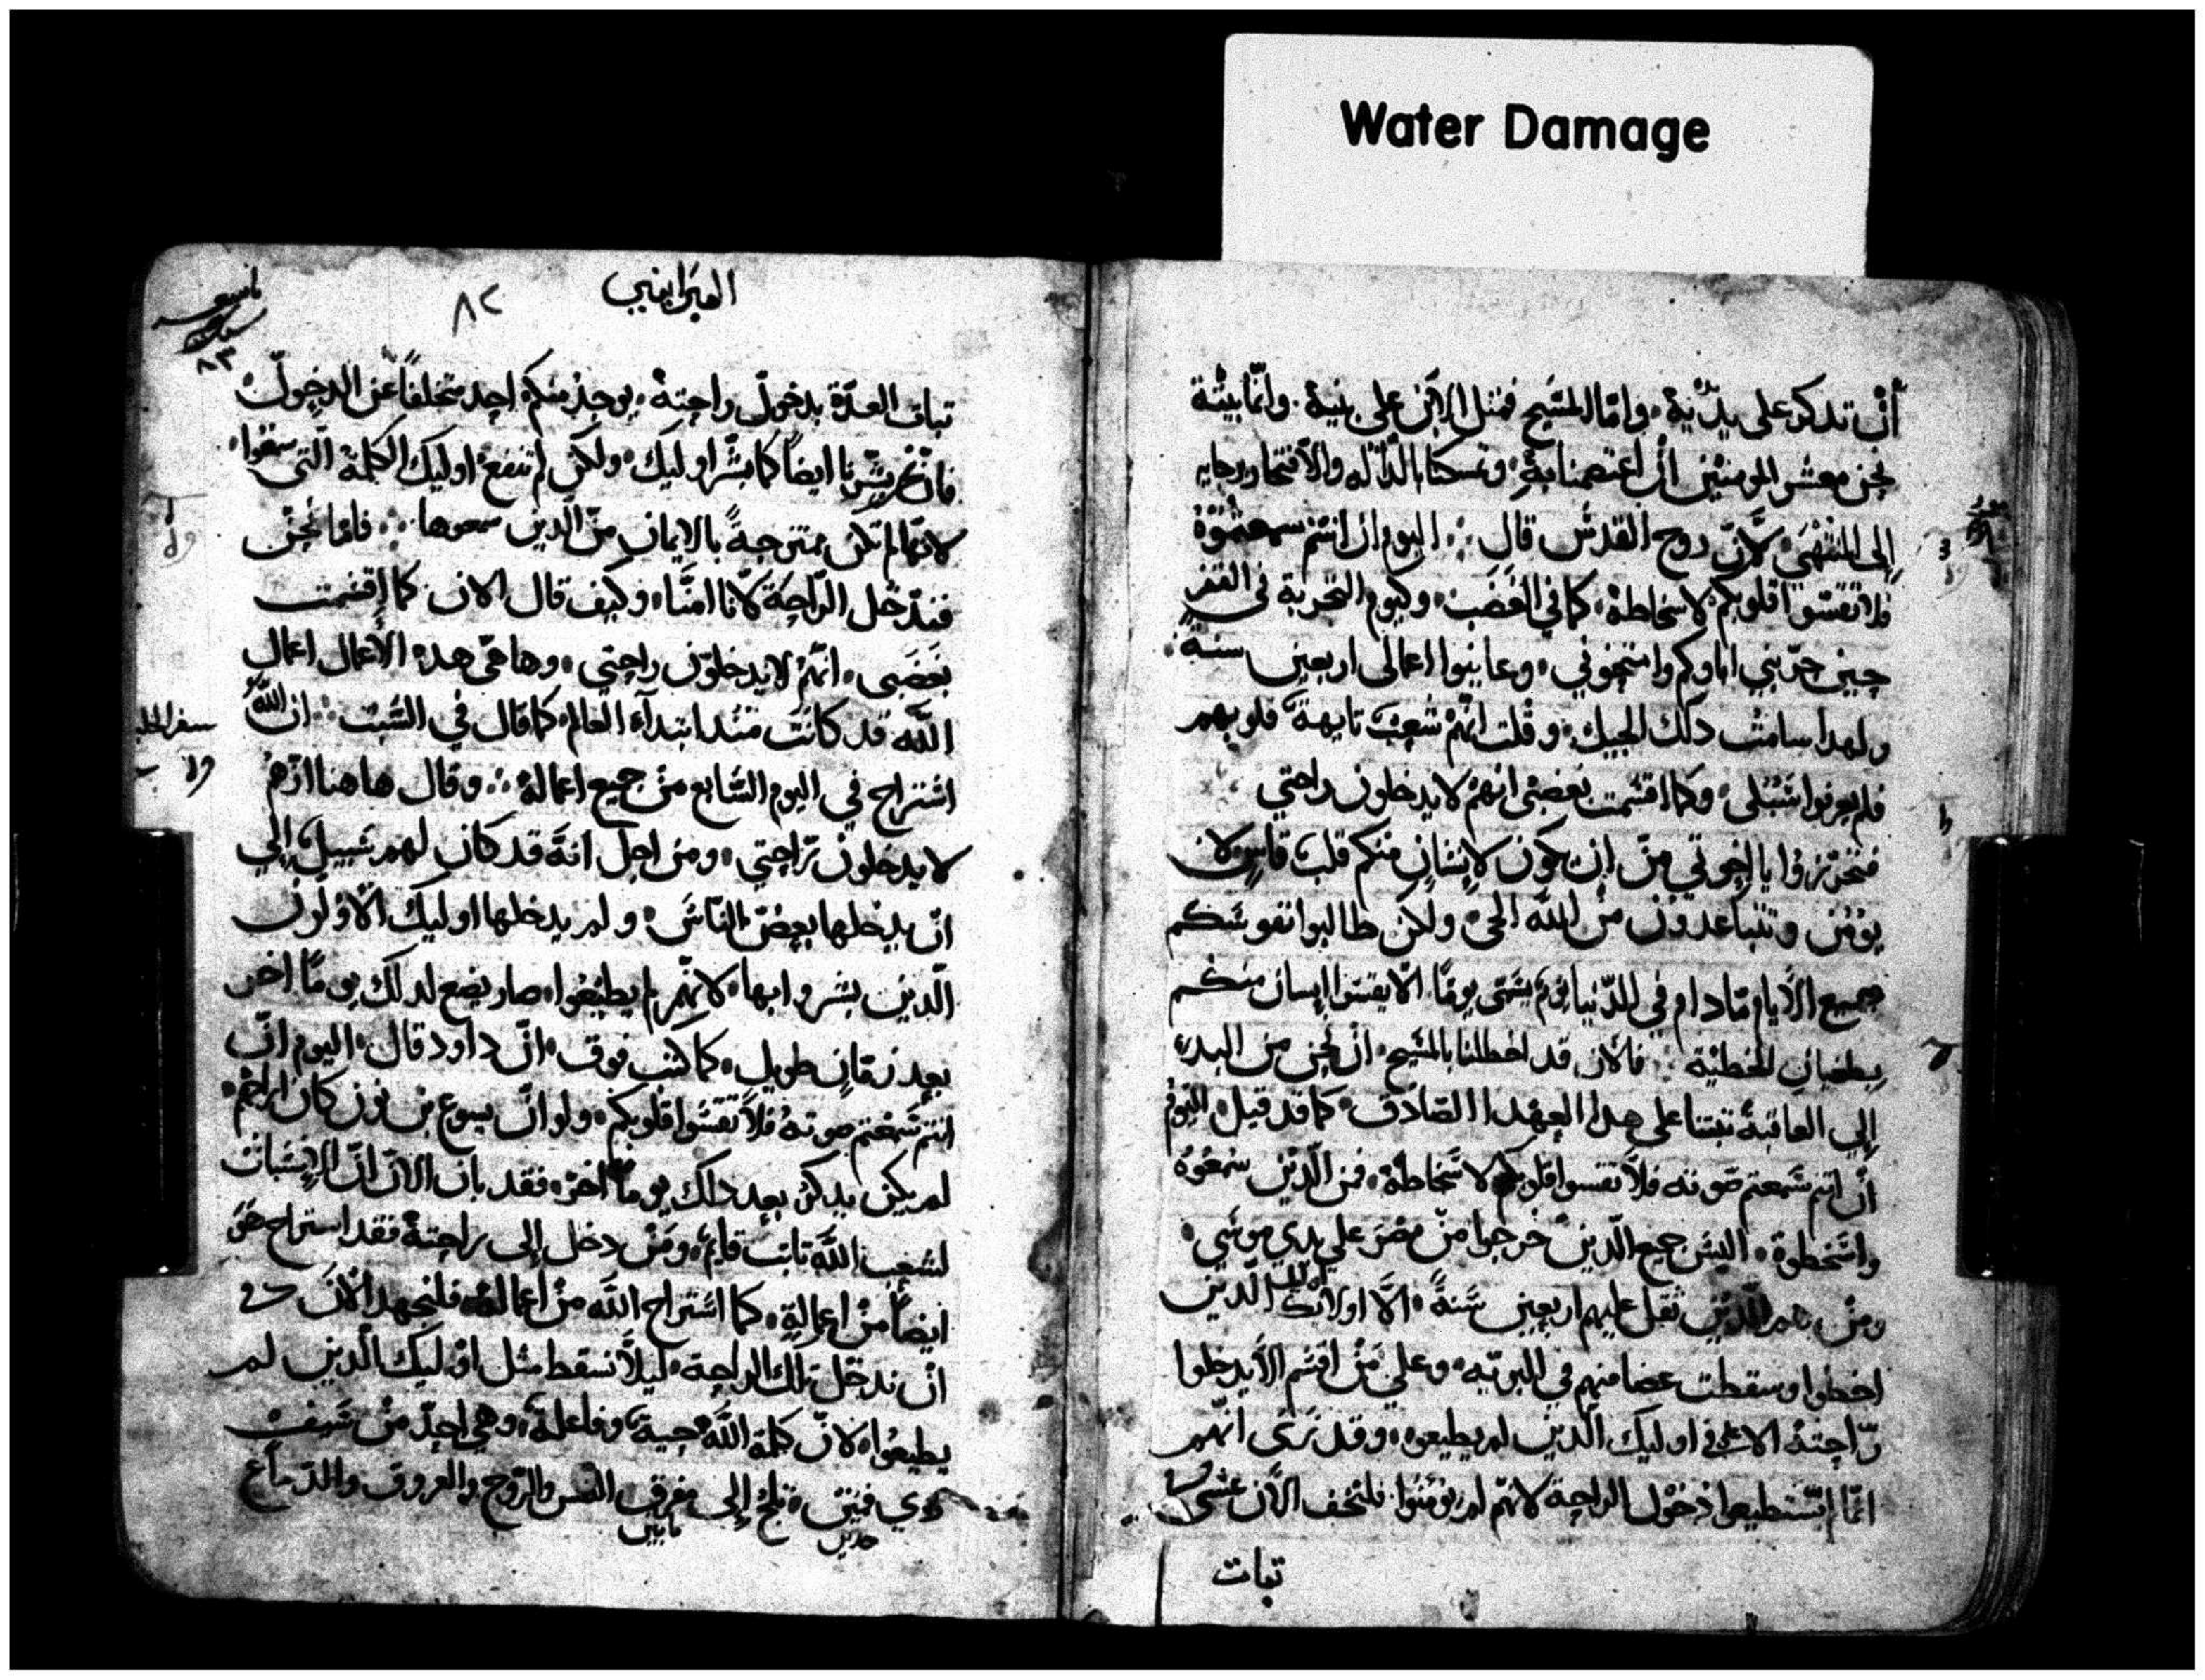 Water Damage
أن تدكر على يديه، واما المسيح فمثل الابن على بنيه. وانما بيته
نحن معشر المومنين ان اعتصمنا به وتمسكنا بالداله والافتخار برجايه
إلى المنتهى، لان روح القدس قال اليوم ان انتم سمعتموه
فلا تقسوا قلوبكم لاسخاطه، كما في الغضب، وكيوم التجربة في القفر
حين جربني اباوكم وامتحنوني، وعاينوا اعمالى اربعين سنة
ولهدا سامت دلك الجيل، وقلت انهم شعب تايهة قلوبهم
فلم يعرفوا سبلى، وكما اقسمت بغضبى انهم لا يدخلون راحتي
فتحرزوا يا اخوتي من ان يكون لانسان منكم قلب قاس لا
يومن وتتباعدون من الله الحى، ولكن طالبوا نفوسكم
جميع الايام مادام في الدنيا يوم يسمى يومًا، الا يقسوا إنسان منكم
بطغيان الخطية فالان قد اختلطنا بالمسيح، ان نحن من البدء
إلي العاقبة ثبتنا على هدا العهد الصادق، كما قد قيل، اليوم
أن انتم سمعتم صوته فلا تقسوا قلوبكم لاسخاطه، فمن الدين سمعوه
واسخطوه، اليس جميع الدين خرجوا من مصر على يدي موسي،
ومن هم الدين ثقل عليهم اربعين سنةً، الا اوليك الدين
اخطوا وسقطت عضامهم في البريه، وعلي من اقسم الا يدخلوا
راحته الا على اوليك الدين لم يطيعوه، وقد نرى انهم
انما لم يستطيعوا دخول الراحة لانهم لم يومنوا، فلنخف الان عسى
تبات
العبرانيين
٨٢
تبات العدة بدخول راحته، يوجد منكم احد متخلفاً عن الدخول،
فان نحن بشرنا ايضاً كما بشر اوليك، ولكن لم تنفع اوليك الكلمة التي سمعوا،
لانها لم تكن ممتزجةً بالايمان من الدين سمعوها فاما نحن
فندخل الراحة لاننا امنا، وكيف قال الان كما اقسمت
بغضبي، انهم لا يدخلون راحتي، وها هى هده الاعمال اعمال
الله قد كانت مند ابتدآء العالم كما قال في السبت ان الله
استراح في اليوم السابع من جميع اعماله وقال هاهنا انهم
لا يدخلون راحتي، ومن اجل انه قد كان لهم سبيل إلي
ان يدخلها بعض الناس، ولم يدخلها اوليك الاولون
الدين بشروا بها، لانهم لم يطيعوا، صار يضع لدلك يومًا اخر
بعد زمان طويل، كما كتب فوق، ان داود قال، اليوم ان
انتم سمعتم صوته فلا تقسوا قلوبكم، ولو ان يسوع بن نون كان اراحهم،
لم يكن يدكر بعد دلك يوماً اخر، فقد بان الان ان الاسبات
لشعب الله تابت قايم، ومن دخل إلى راحته فقد استراح هو
ايضاً من اعماله، كما استراح الله من أعماله، فلنجهد الان
أن ندخل تلك الراحة، ليلا نسقط مثل اوليك الدين لم
يطيعوا، لان كلمة الله حية، وفاعلة، وهي احد من سيف
دي فمين، تلج إلى مفرق النفس والروح والعروق والدماغ